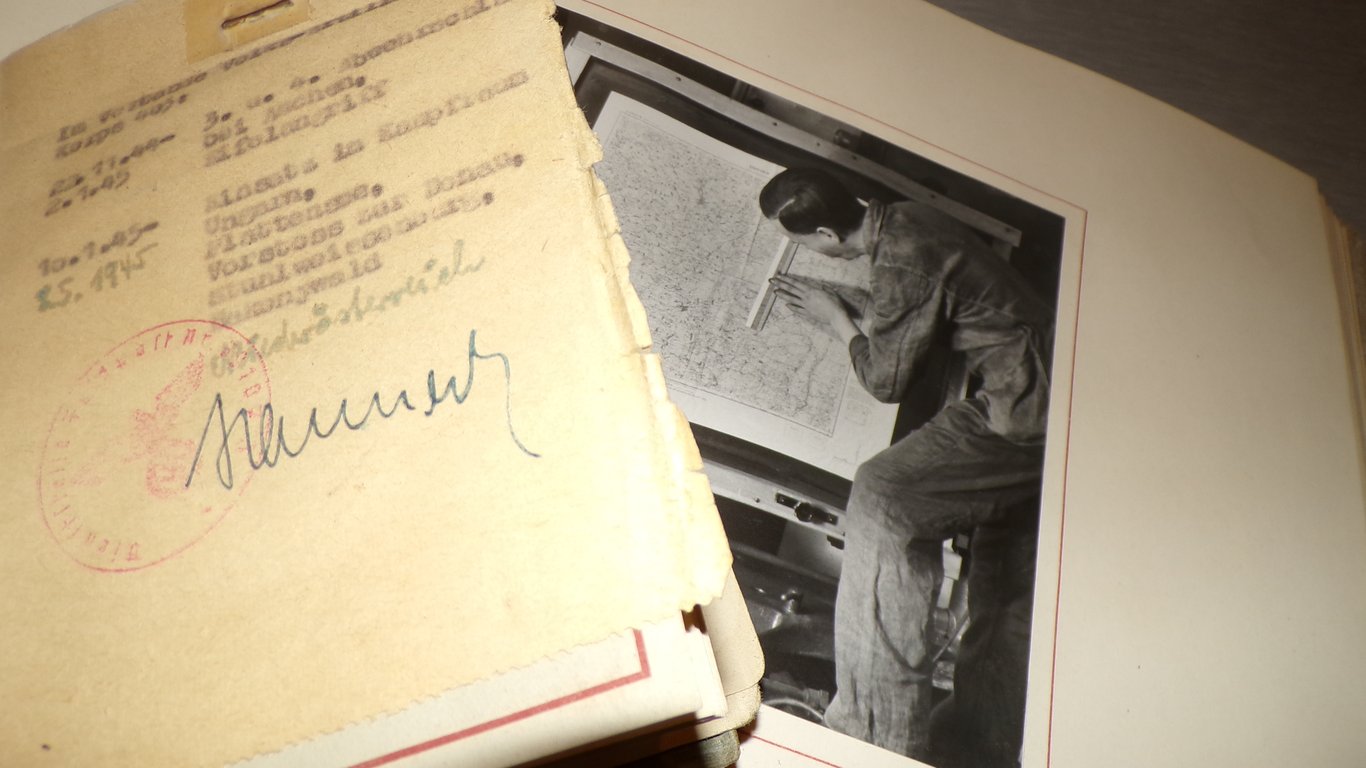 Im Verbande
Korps aus:
3. u. 4. Abwehrschl
bei Aachen,
Eifelangriff
23.11.44-
2.1.45
Einsatz im Kampfraum
Ungarn,
Plattensee,
Vorstoss zur Donau,
Stuhlweissenburg,
10.1.45-
8.5.1945
Niederösterreich